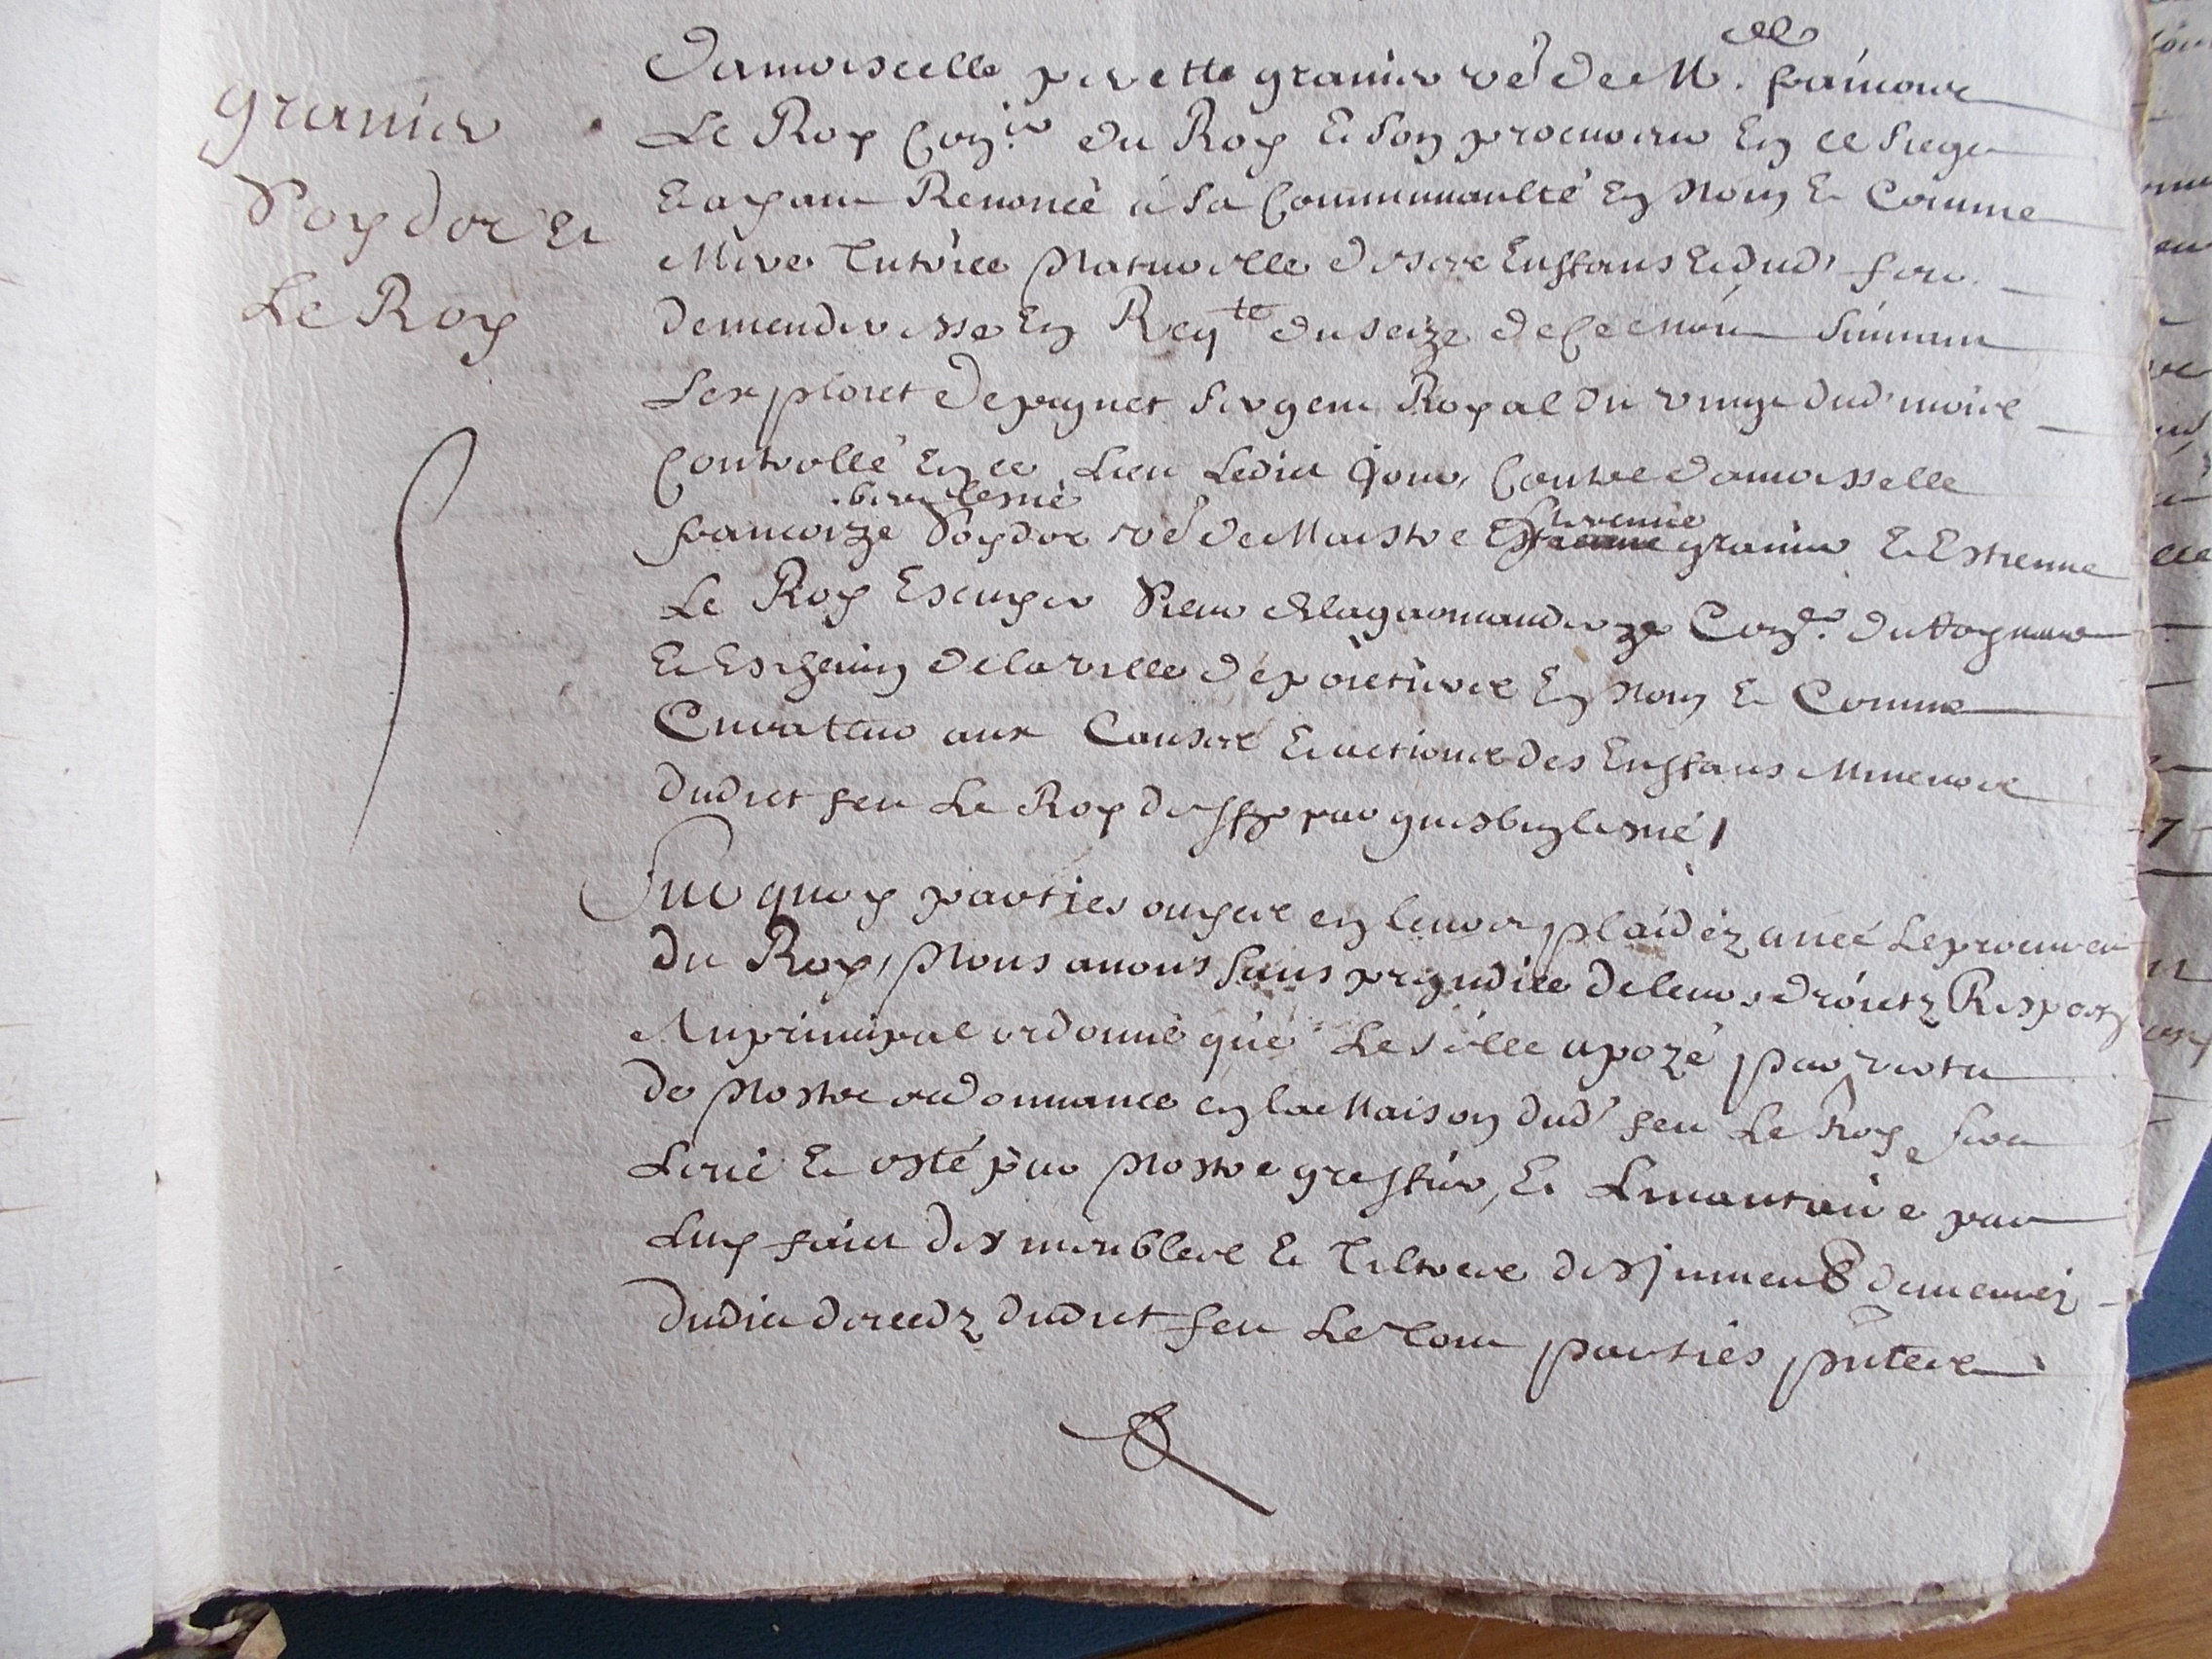 granier
Poydor et
Le Roy
Damoiselle pierette granier vë de M. francois
Le Roy Con.er du Roy et son procureur En ce siege
Et ayant Renoncé a sa Communaulté En Nom Et Comme
Mere Tutrice Naturelle de ses Enffans Et dud' feu
demenderesse En Reqte du seize de ce mois suivant
Lexploict de pignet sergent Royal du vingt dud' mois
Controllé En ce Lieu Ledict jour, Contre damoisselle
francoize Poydor vë de Maistre granier Et Estienne
Le Roy Escuyer Sieur Con.er du Roy
Et Eschevin de la ville de poictiers En Nom Et Comme
Curateur aux Causes Et actions des Enffans Mineurs
dudict feu Le Roy deff par
Sur quoy parties ouyes en leurs plaidez avec Le procureur
du Roy, Nous avons sans prejudice de leurs droictz Respectz
Au principal ordonné que Le séelle apozé par vertu
de Nostre ordonnance en la Maison dud' feu Le Roy sera
Levé Et osté par Nostre greffier, Et Linvantaire par
Luy faict des meubles Et Tiltres des demeurez
dudict decedz dudict feu Le Tout parties pntes